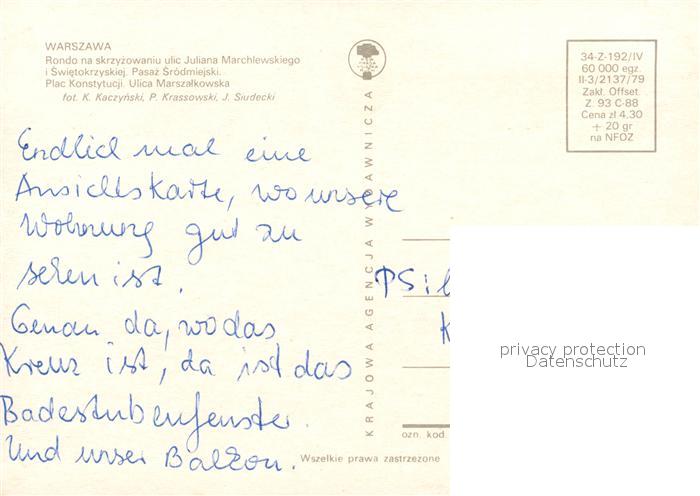 WARSZAWA
Rondo na skrzyżowaniu ulic Juliana Marchlewskiego
i Świętokrzyskiej. Pasaż Śródmiejski.
Plac Konstytucji. Ulica Marszałkowska
fot. K. Kaczyński, P. Krassowski, J. Siudecki
34-Z-192/IV
60 000 egz.
II-3/2137/79
Zakł. Offset.
Z. 93 C-88
Cena zł 4,30
+ 20 gr
na NFOZ
KRAJOWA AGENCJA WYDAWNICZA
Endlich mal eine
Ansichtskarte, wo unsere
Wohnung gut zu
sehen ist.
Genau da, wo das
Kreuz ist, da ist das
Badestubenfenster.
Und unser Balkon.
PSil
K
privacy protection
Datenschutz
ozn. kod
Wszelkie prawa zastrzeżone